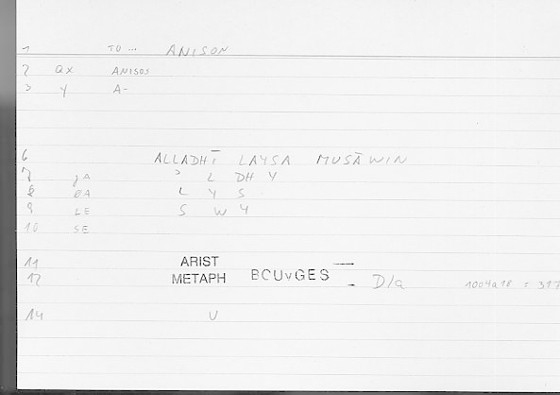 1 TO ... ANISON
2 QX ANISOS
3 Y A-
6 ALLADHĪ LAYSA MUSĀWIN
7 JA ʾ L DH Y
8 EA L Y S
9 LE S W Y
10 SE
11 ARIST
12 METAPH BOUvGES D/a 1004a18 : 317
14 V